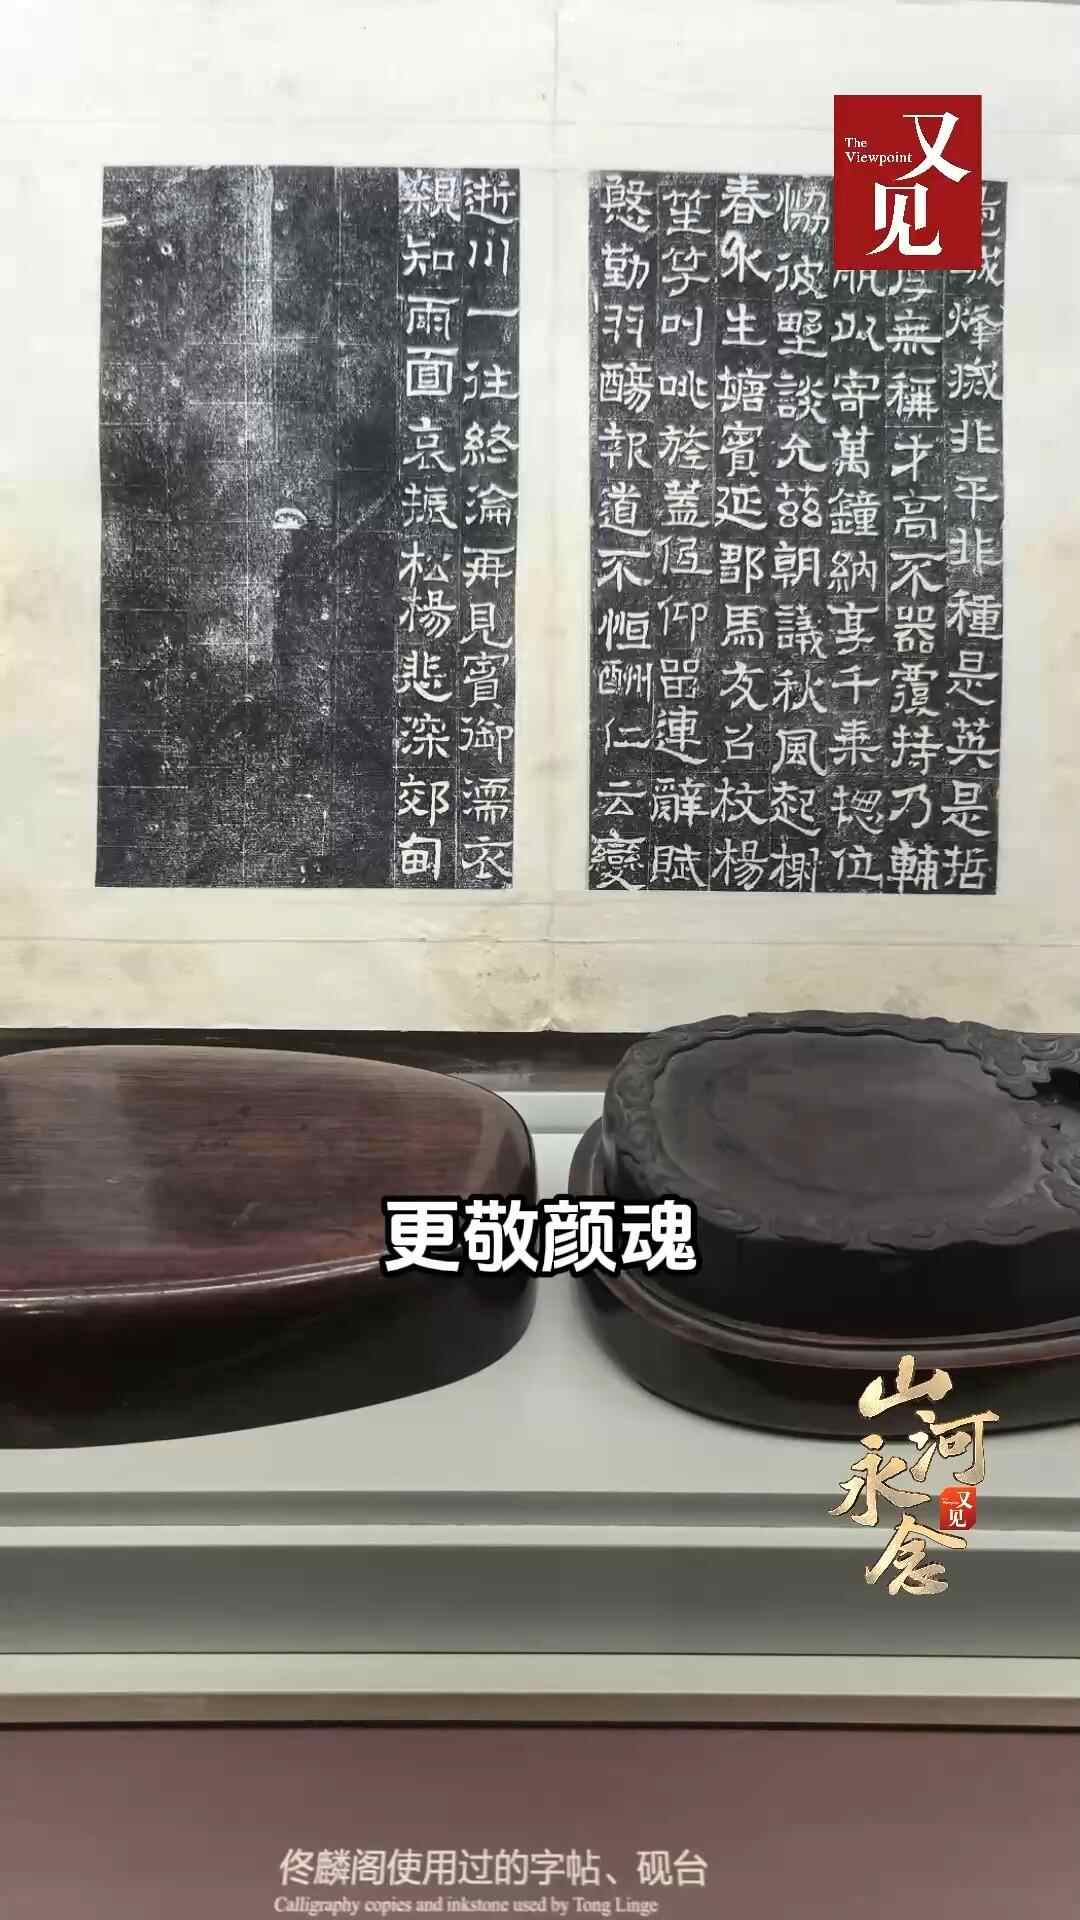 The Viewpoint
又见
城烽滅非平非種是英是哲
厚無稱才高不器覆持乃輔
以寄萬鐘納享千乘摠位
恊彼墅談允茲朝議秋風起樹
春水生塘賓延鄒馬友召枚楊
笙竽叫咷旍蓋低仰留連辭賦
慇勤羽觴報道不恒酬仁云變
逝川一往終淪再見賓御濡衣
親知雨面哀挻松楊悲深郊甸
更敬颜魂
山河永念
又见
佟麟阁使用过的字帖、砚台
Calligraphy copies and inkstone used by Tong Linge